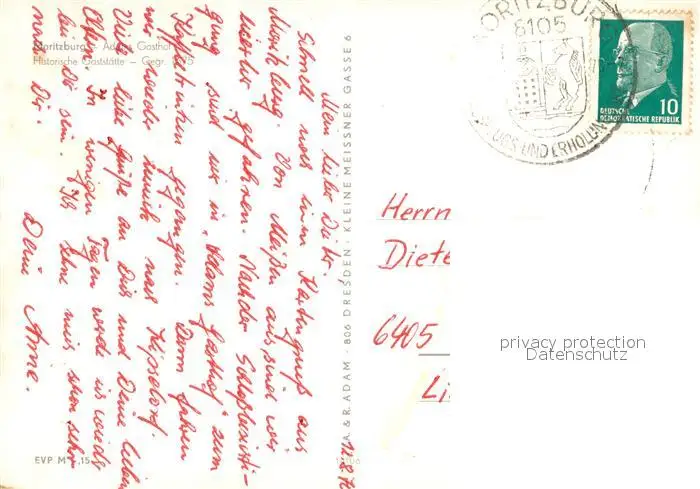 Moritzburg - Adams Gasthof
Historische Gaststätte - Gegr. 1675
Mein lieber Dieter,
schnell noch einen Kartengruß aus
Moritzburg. Von Meißen aus sind wir
hierher gefahren. Nach der Schloßbesichti-
gung sind wir in "Adams Gasthof" zum
Kaffeetrinken gegangen. Dann fahren
wir heute zurück nach Kipsdorf.
Viele liebe Grüße an Dich und Deine lieben
Eltern. In wenigen Tagen werde ich wieder
bei Dir sein. Ich sehne mich schon sehr
nach Dir.
Deine Anne.
12.8.
EVP M -,15
A. & R. ADAM · 806 DRESDEN · KLEINE MEISSNER GASSE 6
MORITZBURG
8105
UND ERHOLUNG
10
DEUTSCHE
DEMOKRATISCHE REPUBLIK
Herrn
Diete
6405
Li
privacy protection
Datenschutz